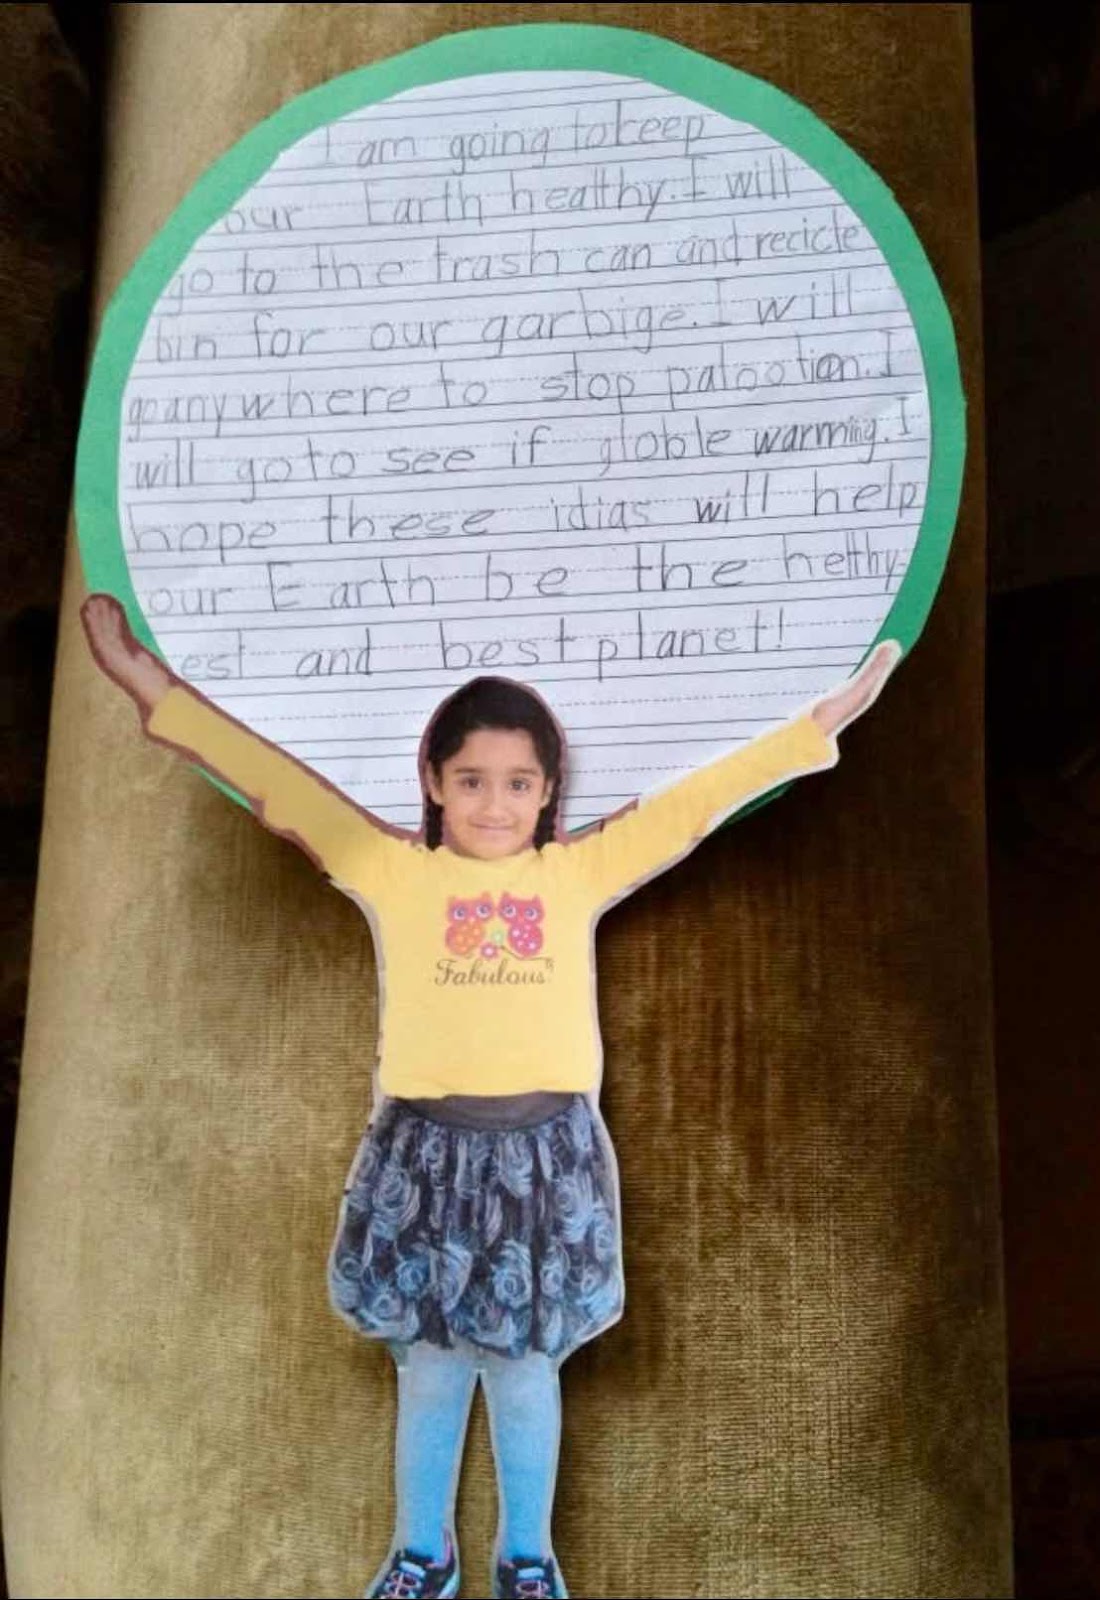 I am going to keep
our Earth healthy. I will
go to the trash can and recicle
bin for our garbige. I will
go anywhere to stop palootion. I
will go to see if globle warming. I
hope these idias will help
our Earth be the helthy-
est and best planet!
Fabulous